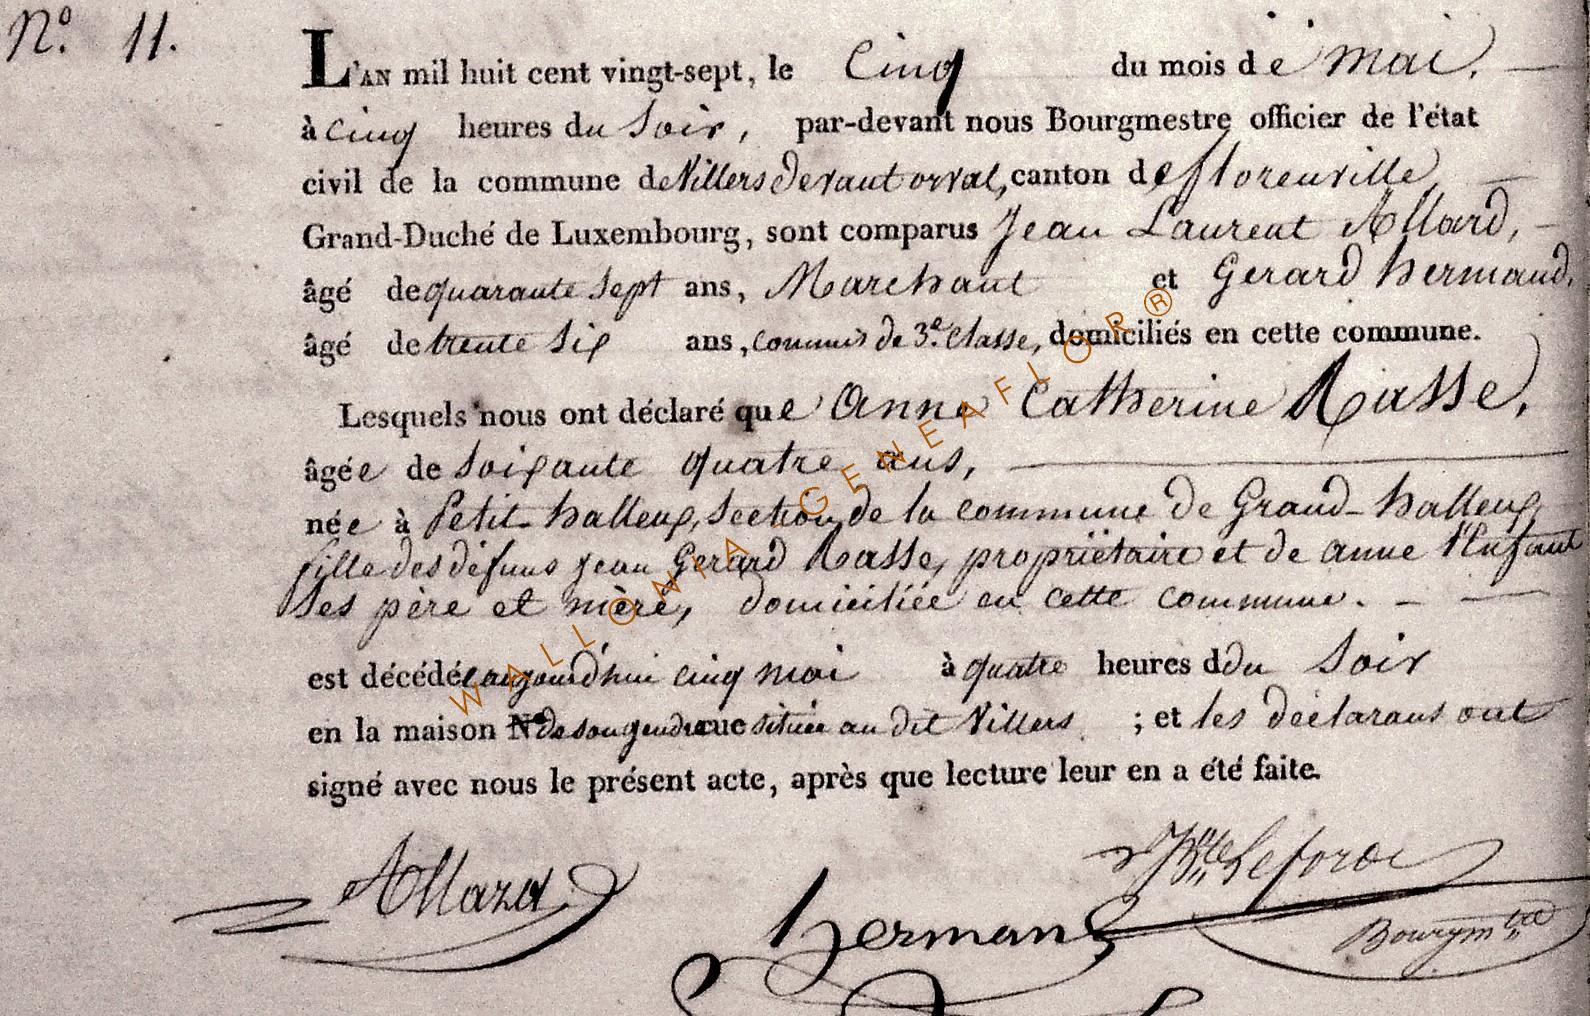 N.º 11.
L'AN mil huit cent vingt-sept, le Cinq du mois de mai.
à cinq heures du Soir, par-devant nous Bourgmestre officier de l'état
civil de la commune de Villers devant orval, canton de florenville
Grand-Duché de Luxembourg, sont comparus Jean Laurent Allard,
âgé de quarante sept ans, Marchant et Gerard hermand,
âgé de trente six ans, commis de 3.e Classe, domiciliés en cette commune.
Lesquels nous ont déclaré que Anne Catherine Rasse,
âgée de Soixante quatre ans,
née à Petit-halleux, Section de la commune de Grand-halleux
fille des défuns jean Gerard Rasse, propriétaire et de anne l'Enfant
Ses père et mère, domiciliée en cette commune.
est décédée aujourd'hui cinq mai à quatre heures d du Soir
en la maison N.º de son gendre rue située au dit Villers ; et les déclarans ont
signé avec nous le présent acte, après que lecture leur en a été faite.
Allard
hermand
Bourgm.tre
WALLONIA GENEAFLOR®